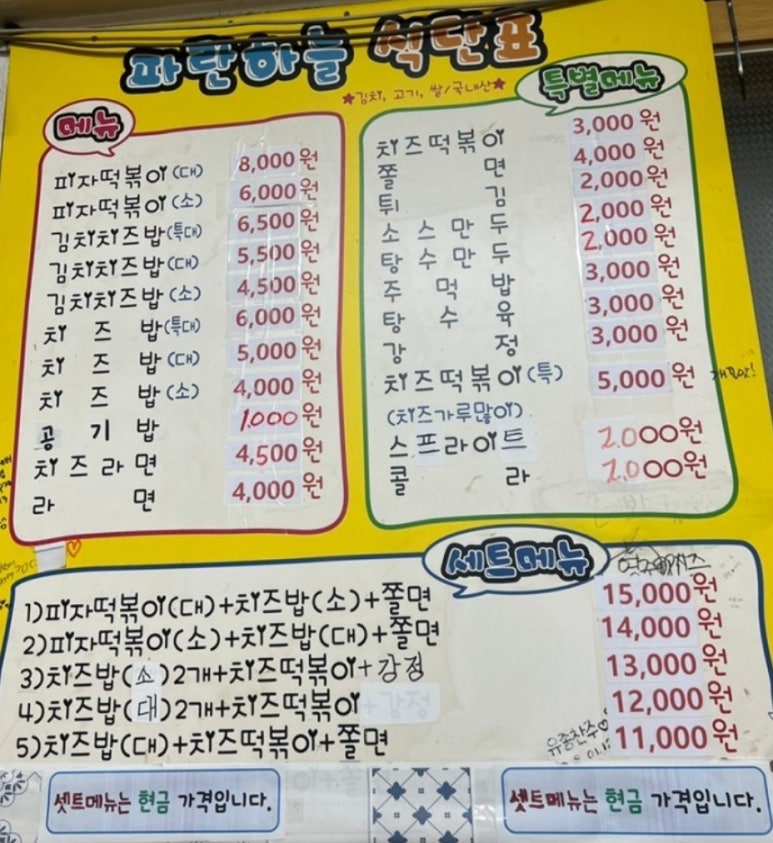 파란하늘 식단표
★김치, 고기, 쌀/국내산★
메뉴
피자떡볶이(대) 8,000원
피자떡볶이(소) 6,000원
김치치즈밥(특대) 6,500원
김치치즈밥(대) 5,500원
김치치즈밥(소) 4,500원
치즈밥(특대) 6,000원
치즈밥(대) 5,000원
치즈밥(소) 4,000원
공기밥 1,000원
치즈라면 4,500원
라면 4,000원
특별메뉴
치즈떡볶이 3,000원
쫄면 4,000원
튀김 2,000원
소스만두 2,000원
탕수만두 2,000원
주먹밥 3,000원
탕수육 3,000원
강정 3,000원
치즈떡볶이(특) 5,000원
(치즈가루많이)
스프라이트 2,000원
콜라 2,000원
세트메뉴
1)피자떡볶이(대)+치즈밥(소)+쫄면 15,000원
2)피자떡볶이(소)+치즈밥(대)+쫄면 14,000원
3)치즈밥(소)2개+치즈떡볶이+강정 13,000원
4)치즈밥(대)2개+치즈떡볶이 12,000원
5)치즈밥(대)+치즈떡볶이+쫄면 11,000원
셋트메뉴는 현금 가격입니다.
셋트메뉴는 현금 가격입니다.